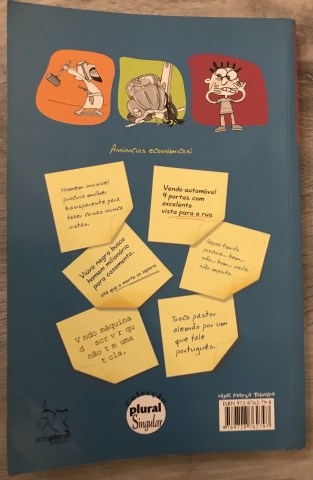 Anúncios económicos:
Homem invisível
procura mulher
transparente para
fazer coisas nunca
vistas.
Vendo automóvel
4 portas com
excelente
vista para a rua.
Viúva negra busca
homem milionário
para casamento.
até que a morte os separe
Rapaz tímido
procura, bem,
não, bem, nada,
não importa.
V ndo máquina
d scr v r qu
não t m uma
t cla.
Troco pastor
alemão por um
que fale
português.
colecção
plural
Singular
arteplural
ISBN 972-8762-79-8